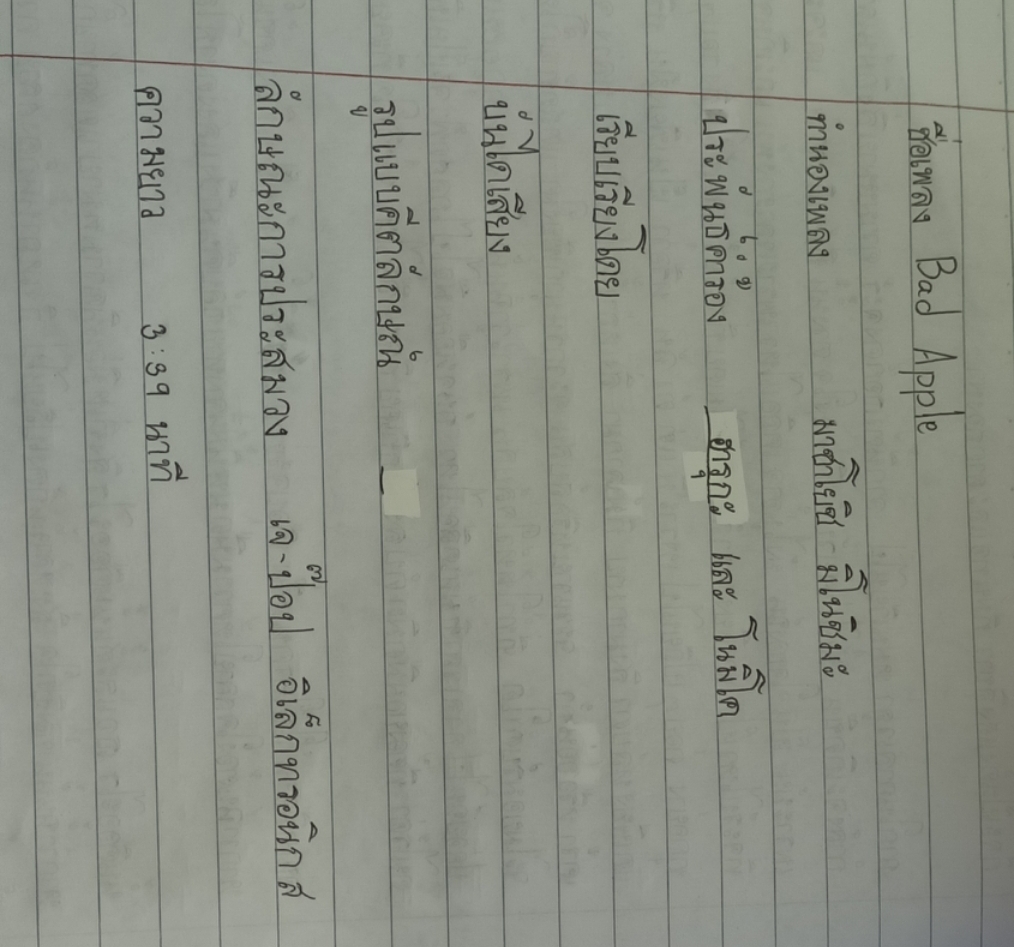 ชื่อเพลง Bad Apple
ทำนองเพลง มาซาโยชิ มิโนชิมะ
ประพันธ์คำร้อง ฮารุกะ และ โนมิโค
เรียบเรียงโดย
บันไดเสียง
รูปแบบคีตลักษณ์
ลักษณะการประสมวง เจ-ป๊อป อิเล็กทรอนิกส
ความยาว 3:39 นาที